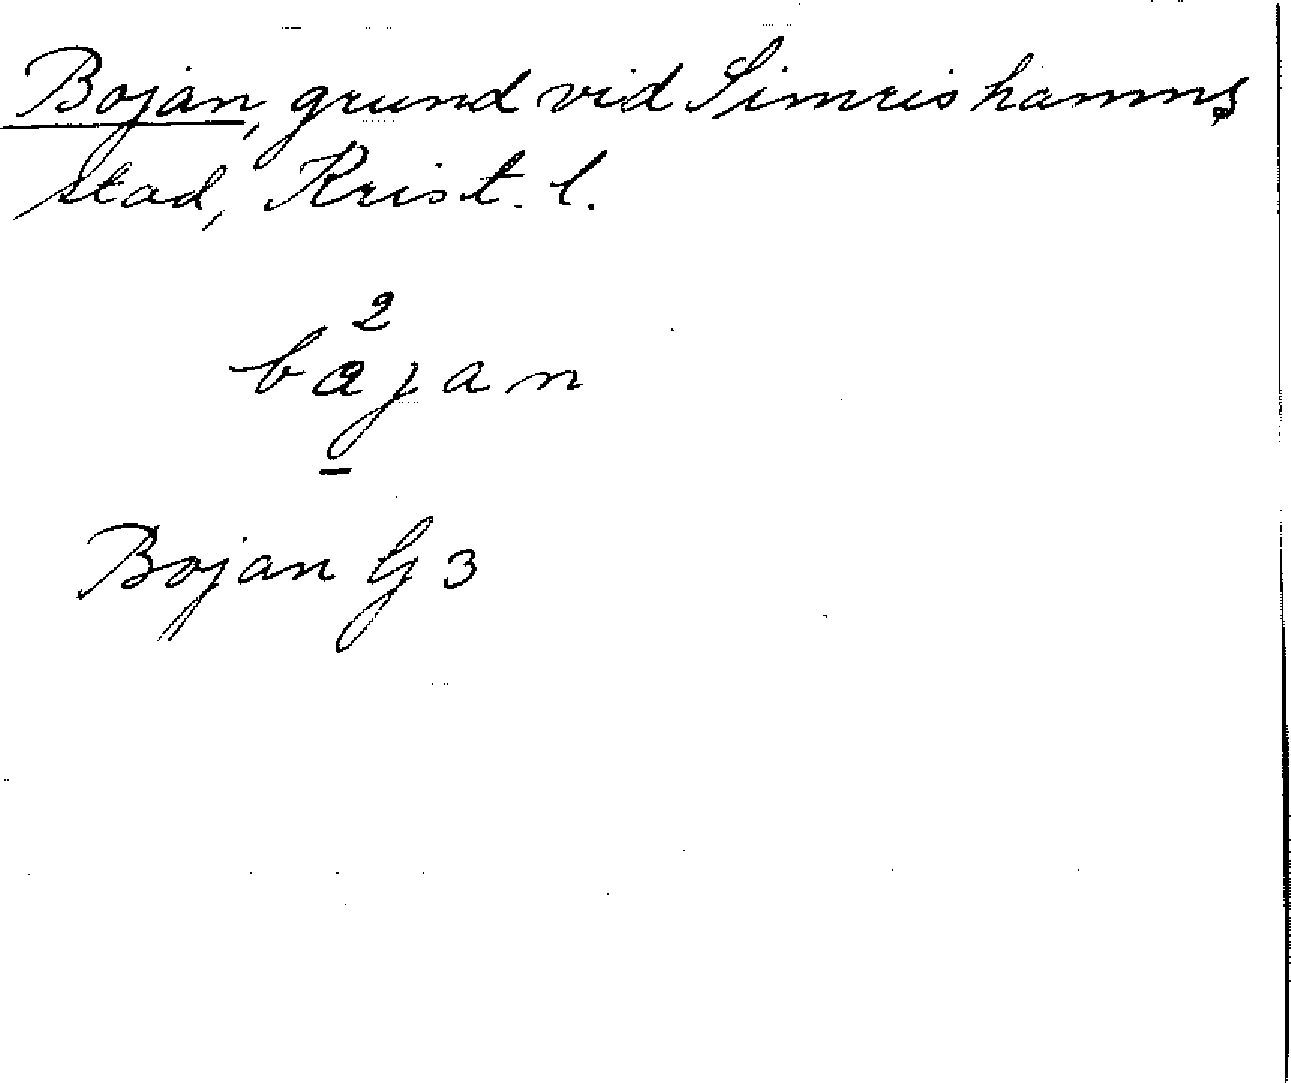 Bojan, grund vid Simrishamns
stad, Krist. l.
2
bajan
Bojan G 3